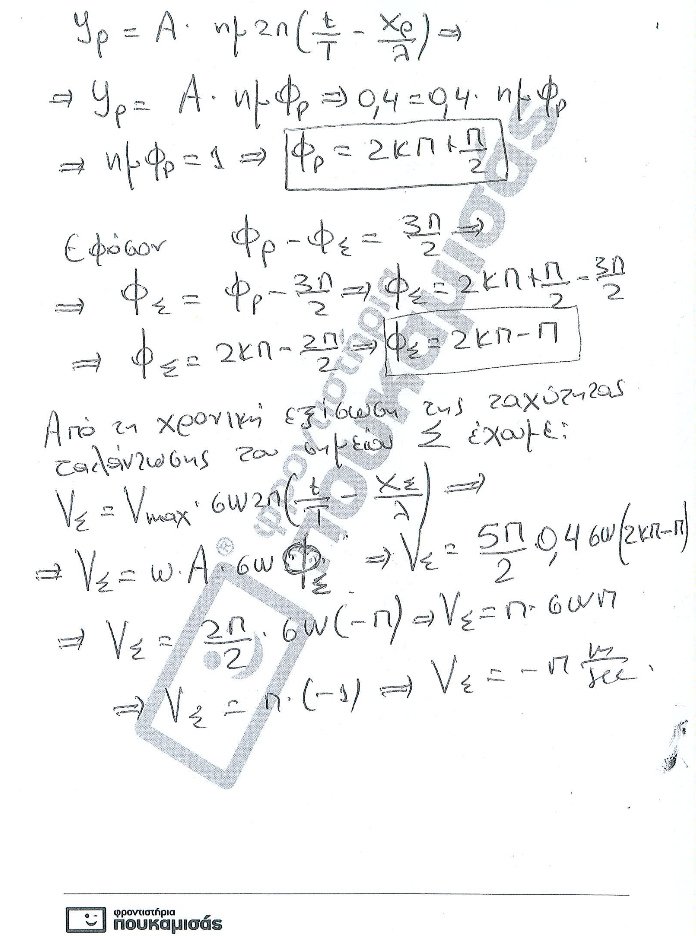 yρ = A · ημ2π(t/T - xρ/λ) ⇒
⇒ yρ = A · ημΦρ ⇒ 0,4 = 0,4 · ημΦρ
⇒ ημΦρ = 1 ⇒ Φρ = 2κπ + π/2
Εφόσον Φρ - ΦΣ = 3π/2 ⇒
⇒ ΦΣ = Φρ - 3π/2 ⇒ ΦΣ = 2κπ + π/2 - 3π/2
⇒ ΦΣ = 2κπ - 2π/2 ⇒ ΦΣ = 2κπ - π
Από τη χρονική εξίσωση της ταχύτητας
ταλάντωσης του σημείου Σ έχουμε:
VΣ = Vmax · συν2π(t/T - xΣ/λ) ⇒
⇒ VΣ = ω · A · συνΦΣ ⇒ VΣ = 5π/2 · 0,4 συν(2κπ-π)
⇒ VΣ = 2π/2 · συν(-π) ⇒ VΣ = π · συνπ
⇒ VΣ = π · (-1) ⇒ VΣ = -π m/sec.
φροντιστήρια
πουκαμισάς
®
φροντιστήρια
πουκαμισάς